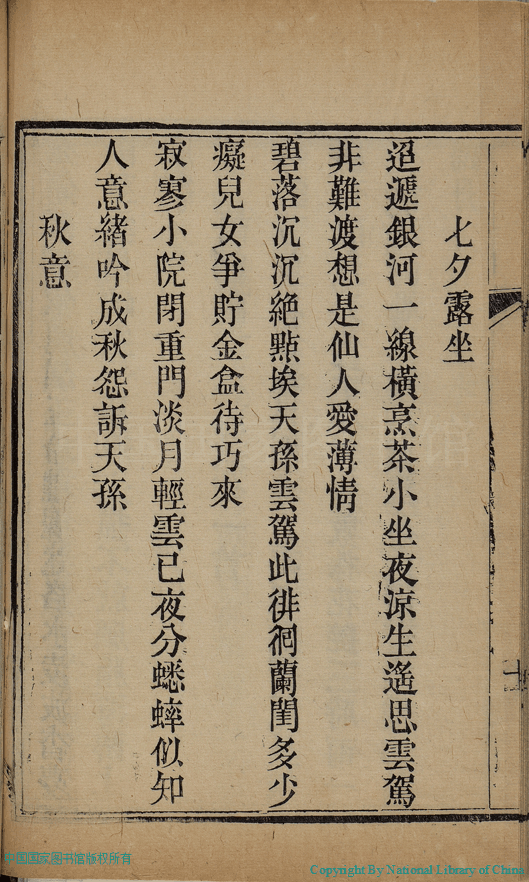 七夕露坐
迢遞銀河一線橫烹茶小坐夜涼生遙思雲駕
非難渡想是仙人愛薄情
碧落沉沉絕點埃天孫雲駕此徘徊蘭閨多少
癡兒女爭貯金盒待巧來
寂寥小院閉重門淡月輕雲已夜分蟋蟀似知
人意緒吟成秋怨訴天孫
秋意
十
中国国家图书馆版权所有
Copyright By National Library of China